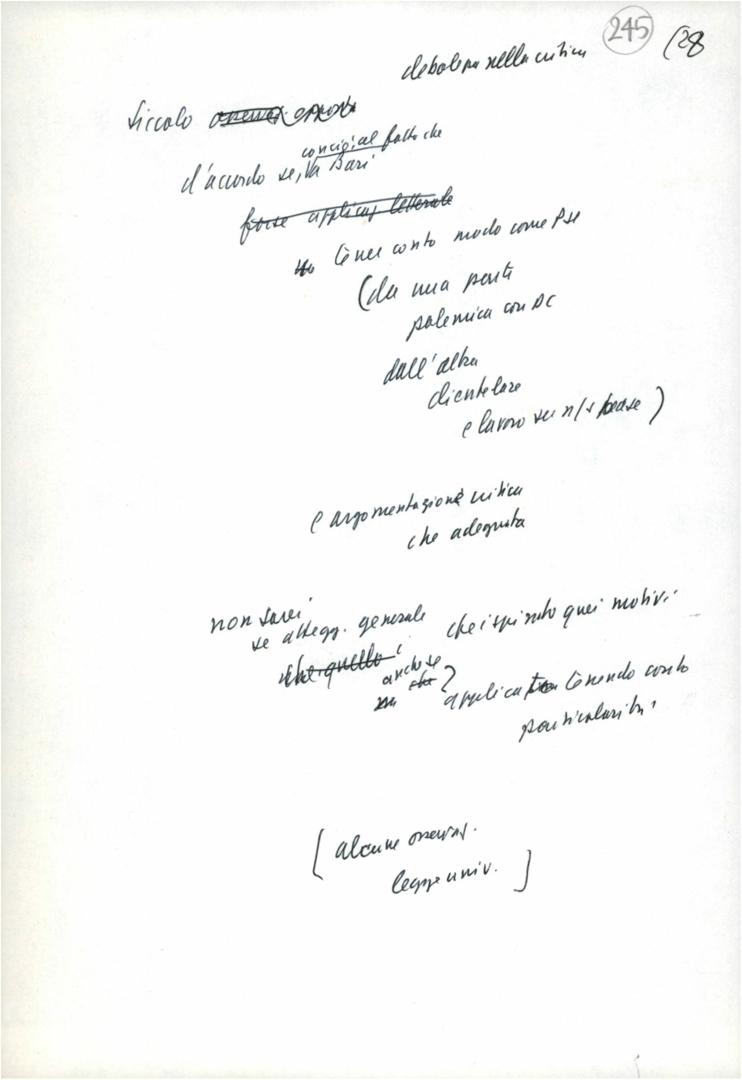 245 (28
debolezza nella critica
Siccolo
d'accordo se, Va Bari
concig. al fatto che
forse applicaz letterale
tener conto modo come Psi
(da una parte
polemica con DC
dall'altra
clientelare
e lavoro su n/s base)
e argomentazione critica
che adeguata
non sarei
se attegg. generale che ispirato quei motivi
che quello
anche se
che applicat tenendo conto
particolarità
[alcune osservaz.
legge univ.]